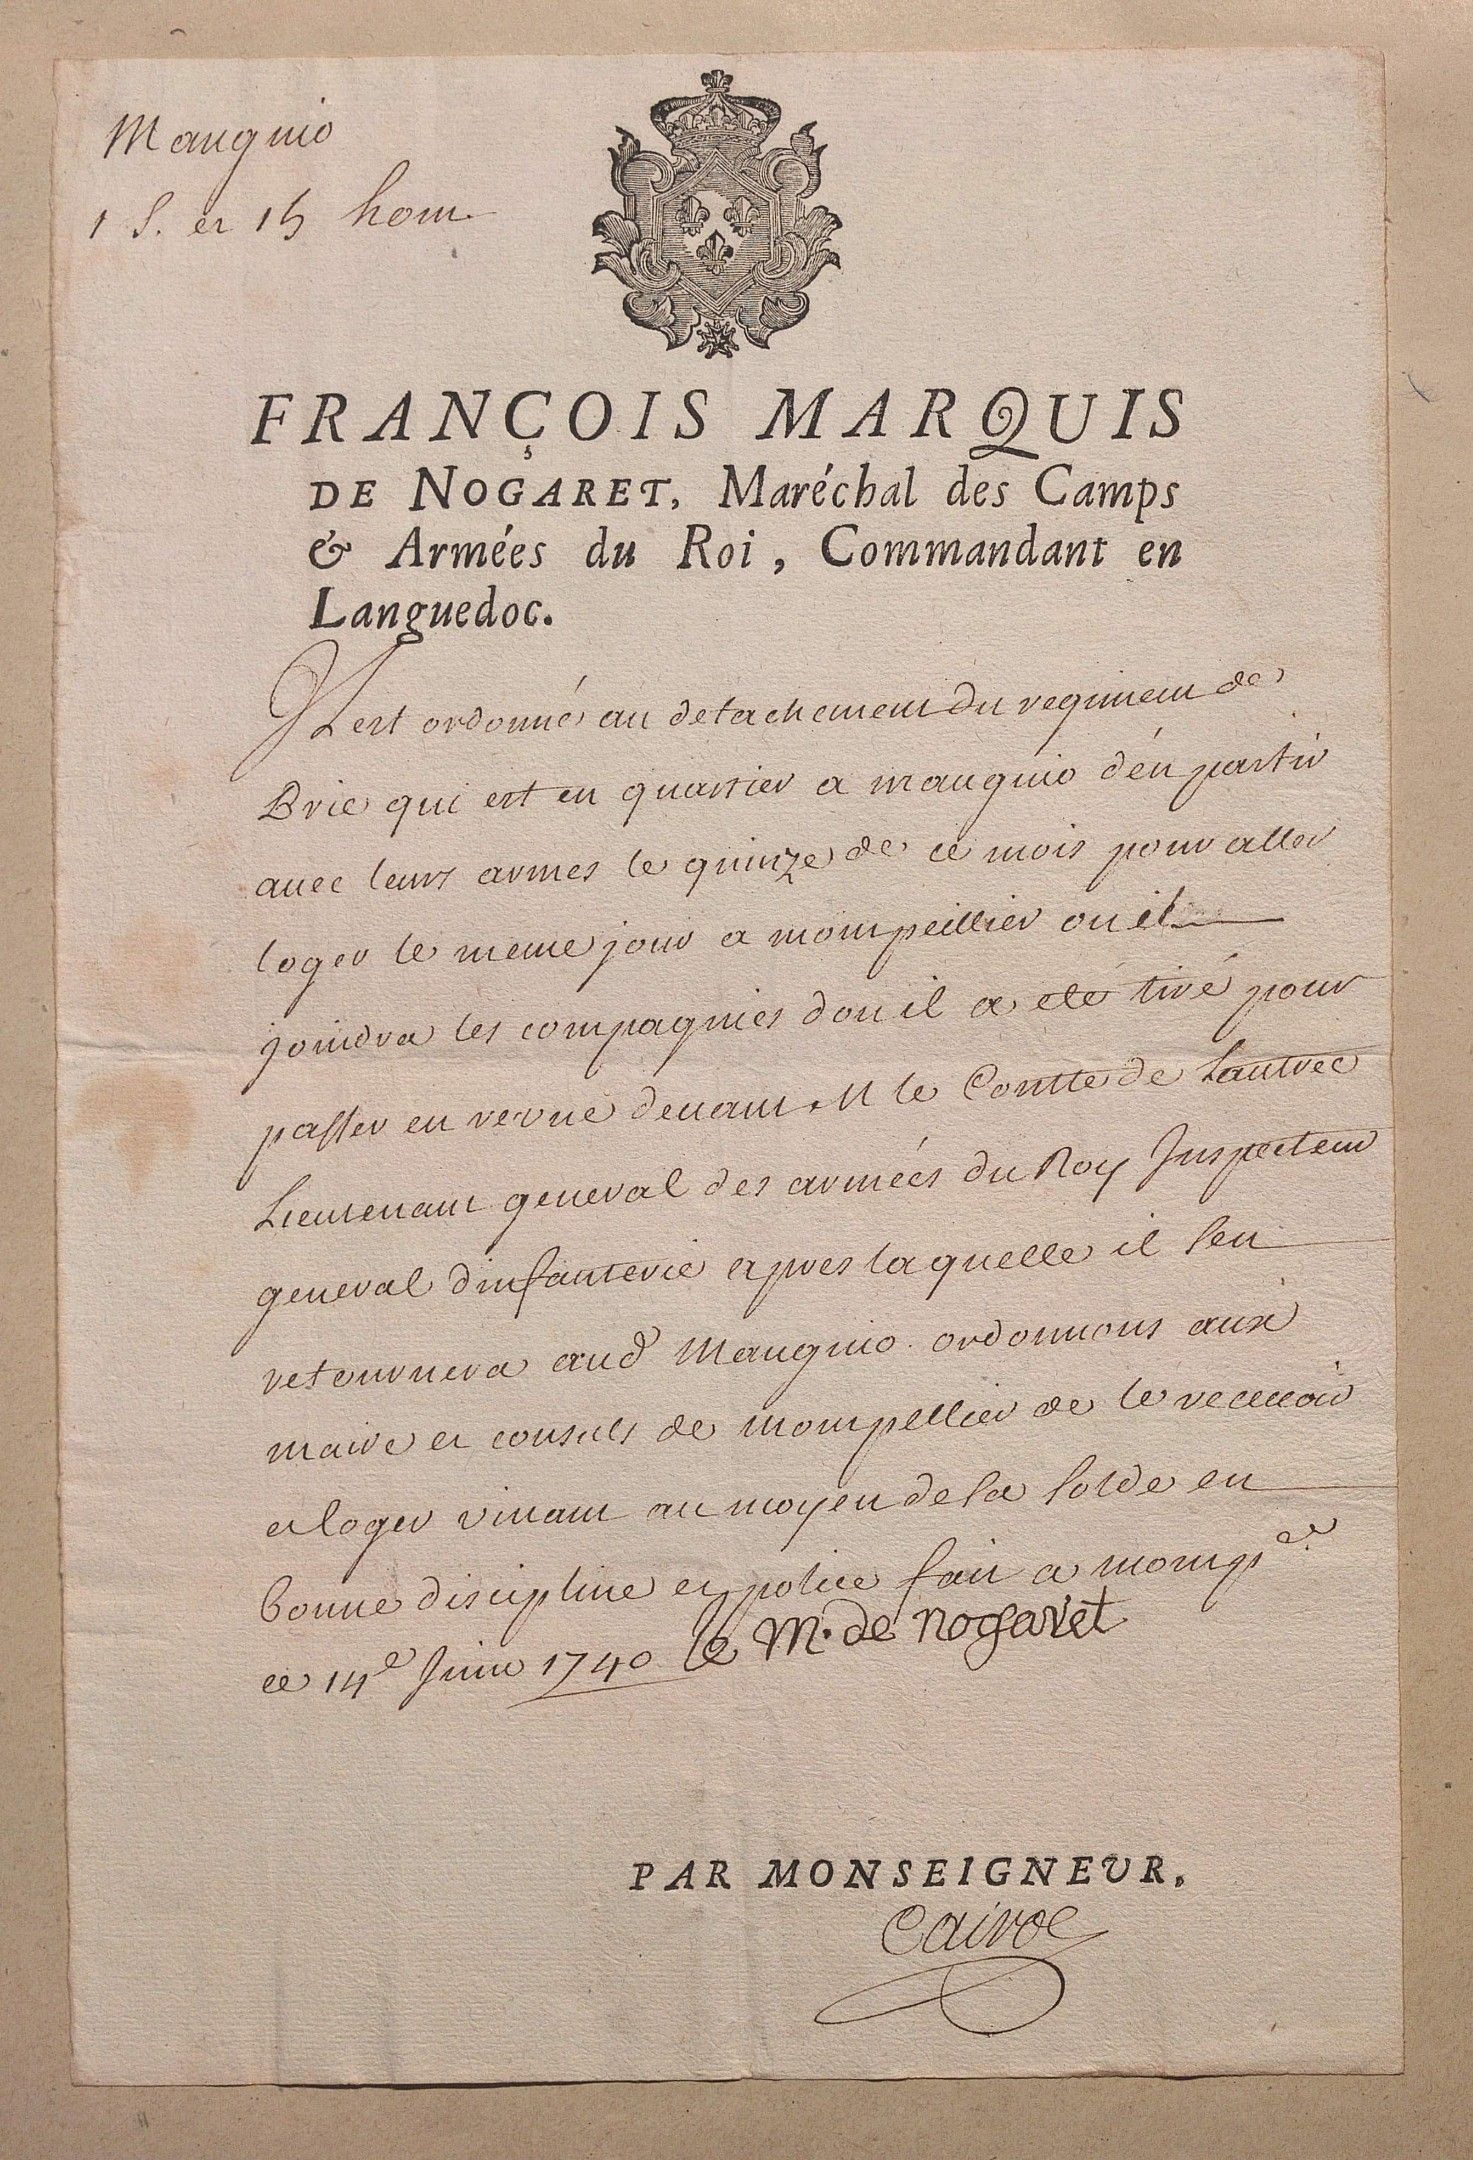 Mauguio
1 S. et 15 hom.
FRANÇOIS MARQUIS
DE NOGARET, Maréchal des Camps
& Armées du Roi, Commandant en
Languedoc.
Il est ordonné au detachement du regiment de
Brie qui est en quartier a mauguio d'én partir
avec leurs armes le quinze de ce mois pour aller
loger le meme jour a mompeillier ou il
joindra les compagnies dou il a eté tiré pour
passer en revue devant M le Comte de Lautrec
Lieutenant general des armées du Roy Inspecteur
general dinfanterie apres laquelle il sen
retournera aud Mauguio. ordonnons aux
maire et consuls de mompellier de le recevoir
et loger vivant au moyen de sa solde en
bonne discipline et police fait a momp.er
ce 14e Juin 1740 le M. de nogaret
PAR MONSEIGNEUR,
Cairoe